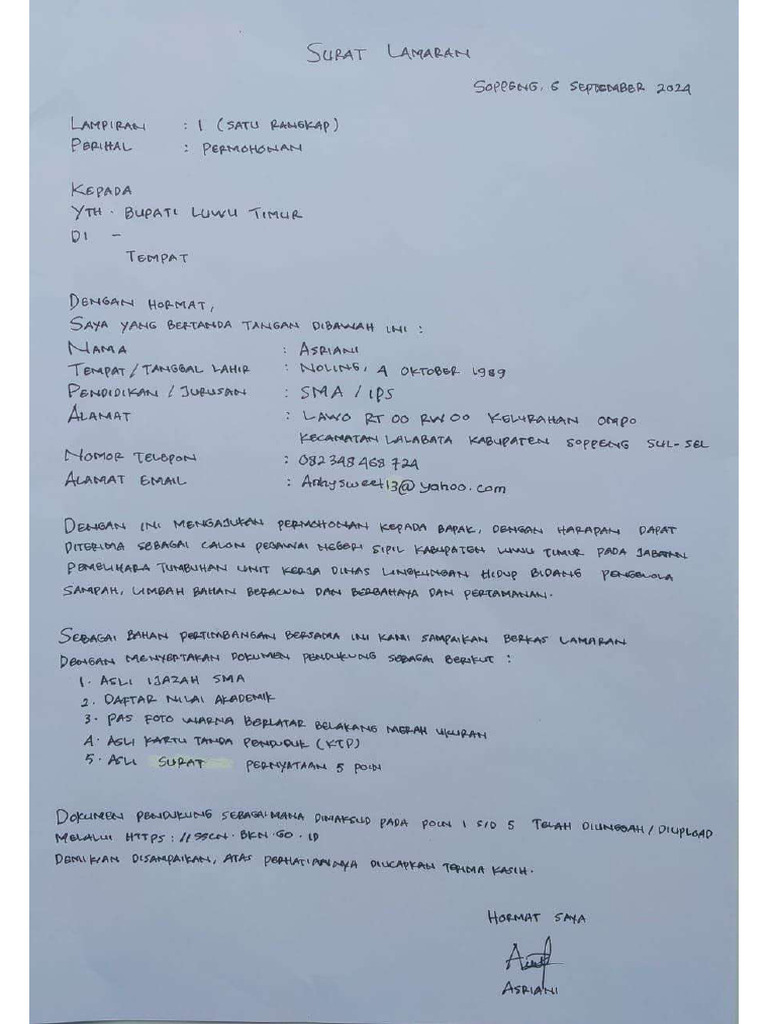 SURAT LAMARAN
SOPPENG, 6 SEPTEMBER 2024
LAMPIRAN : 1 (SATU RANGKAP)
PERIHAL : PERMOHONAN
KEPADA
YTH. BUPATI LUWU TIMUR
DI -
TEMPAT
DENGAN HORMAT,
SAYA YANG BERTANDA TANGAN DIBAWAH INI :
NAMA : ASRIANI
TEMPAT/TANGGAL LAHIR : NOLING, 4 OKTOBER 1989
PENDIDIKAN / JURUSAN : SMA / IPS
ALAMAT : LAWO RT 00 RW 00 KELURAHAN OMPO
KECAMATAN LALABATA KABUPATEN SOPPENG SUL-SEL
NOMOR TELEPON : 082 348 468 724
ALAMAT EMAIL : Ankysweet13@yahoo.com
DENGAN INI MENGAJUKAN PERMOHONAN KEPADA BAPAK, DENGAN HARAPAN DAPAT
DITERIMA SEBAGAI CALON PEGAWAI NEGERI SIPIL KABUPATEN LUWU TIMUR PADA JABATAN
PEMELIHARA TUMBUHAN UNIT KERJA DINAS LINGKUNGAN HIDUP BIDANG PENGELOLA
SAMPAH, LIMBAH BAHAN BERACUN DAN BERBAHAYA DAN PERTAMANAN.
SEBAGAI BAHAN PERTIMBANGAN BERSAMA INI KAMI SAMPAIKAN BERKAS LAMARAN
DENGAN MENYERTAKAN DOKUMEN PENDUKUNG SEBAGAI BERIKUT :
1. ASLI IJAZAH SMA
2. DAFTAR NILAI AKADEMIK
3. PAS FOTO WARNA BERLATAR BELAKANG MERAH UKURAN
4. ASLI KARTU TANDA PENDUDUK (KTP)
5. ASLI SURAT PERNYATAAN 5 POIN
DOKUMEN PENDUKUNG SEBAGAIMANA DIMAKSUD PADA POIN 1 S/D 5 TELAH DIUNGGAH/DIUPLOAD
MELALUI HTTPS://SSCN.BKN.GO.ID
DEMIKIAN DISAMPAIKAN, ATAS PERHATIANNYA DIUCAPKAN TERIMA KASIH.
HORMAT SAYA
ASRIANI